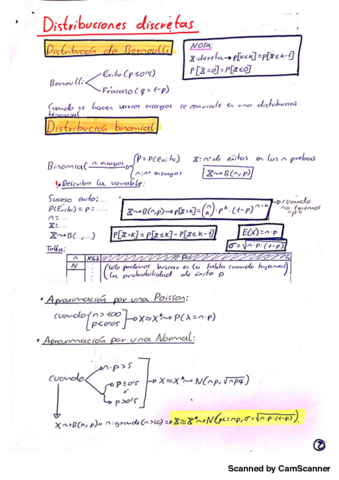 Distribuciones discretas
Distribución de Bernoulli
NOTA:
X: discreta → P[X<k]=P[X≤k-1]
P[X=0]=P[X≤0]
Bernoulli
Éxito (p≤0'5)
Fracaso (q=1-p)
Cuando se hacen varios ensayos se convierte en una distribución binomial
Distribución binomial
Binomial
n ensayos
p=P(Éxito)
n: nº ensayos
X: nº de éxitos en las n pruebas
X~B(n,p)
Describir la variable:
Suceso éxito:...
P(Éxito)=p=....
n=...
X:...
X~B(..,..)
X~B(n,p)→p[X=k]=(n k)·p^k·(1-p)^(n-k)
cuando no
P[X=k]=P[X≤k]-P[X≤k-1]
E(X)=n·p
σ=√n·p·(1-p)
Tabla:
n
X≤k
P
N
(sólo podemos buscar en la tabla cuando tengamos la probabilidad de éxito p
• Aproximación por una Poisson:
cuando
n>100
p<0'05
→X≈X*~P(λ=n·p)
• Aproximación por una Normal:
cuando
n·p>5
p≤0'5
ó
p>0'5
→X≈X*~N(np,√npq)
X~B(n,p) n grande(n>20)⇒X≈X*~N(μ=np,σ=√n·p·(1-p))
Scanned by CamScanner